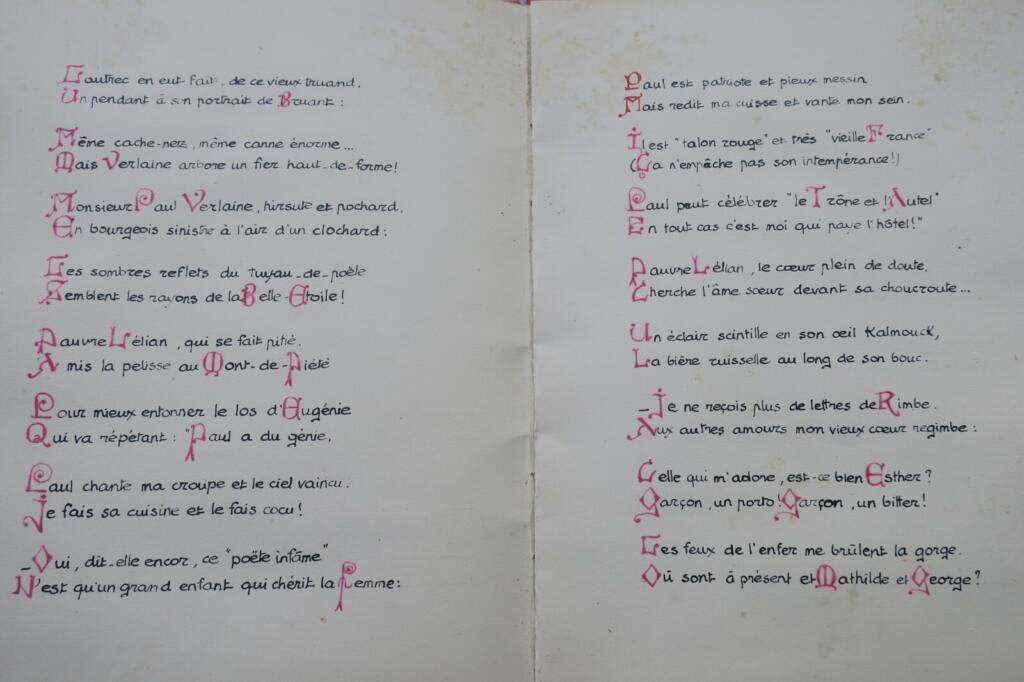 Lautrec en eut fait, de ce vieux truand,
Un pendant à son portrait de Bruant :
Même cache-nez, même canne énorme...
Mais Verlaine arbore un fier haut-de-forme!
Monsieur Paul Verlaine, hirsute et pochard,
En bourgeois sinistre à l'air d'un clochard :
Les sombres reflets du tuyau-de-poêle
Semblent les rayons de la Belle-Etoile!
Pauvre Lélian, qui se fait pitié,
A mis la pelisse au Mont-de-Piété
Pour mieux entonner le los d'Eugénie
Qui va répétant : "Paul a du génie,
Paul chante ma croupe et le ciel vaincu.
Je fais sa cuisine et le fais cocu!
_Oui, dit-elle encor, ce "poëte infâme"
N'est qu'un grand enfant qui chérit la Femme :
Paul est patriote et pieux messin
Mais redit ma cuisse et vante mon sein.
Il est "talon rouge" et très "vieille France"
(Ça n'empêche pas son intempérance!)
Paul peut célébrer "le Trône et l'Autel"
En tout cas c'est moi qui paye l'hôtel!"
Pauvre Lélian, le cœur plein de doute,
Cherche l'âme sœur devant sa choucroute...
Un éclair scintille en son œil Kalmouck,
La bière ruisselle au long de son bouc.
_Je ne reçois plus de lettres de Rimbe.
Aux autres amours mon vieux cœur regimbe :
Celle qui m'adore, est-ce bien Esther?
Garçon, un porto! Garçon, un bitter!
Les feux de l'enfer me brûlent la gorge.
Où sont à présent et Mathilde et George?